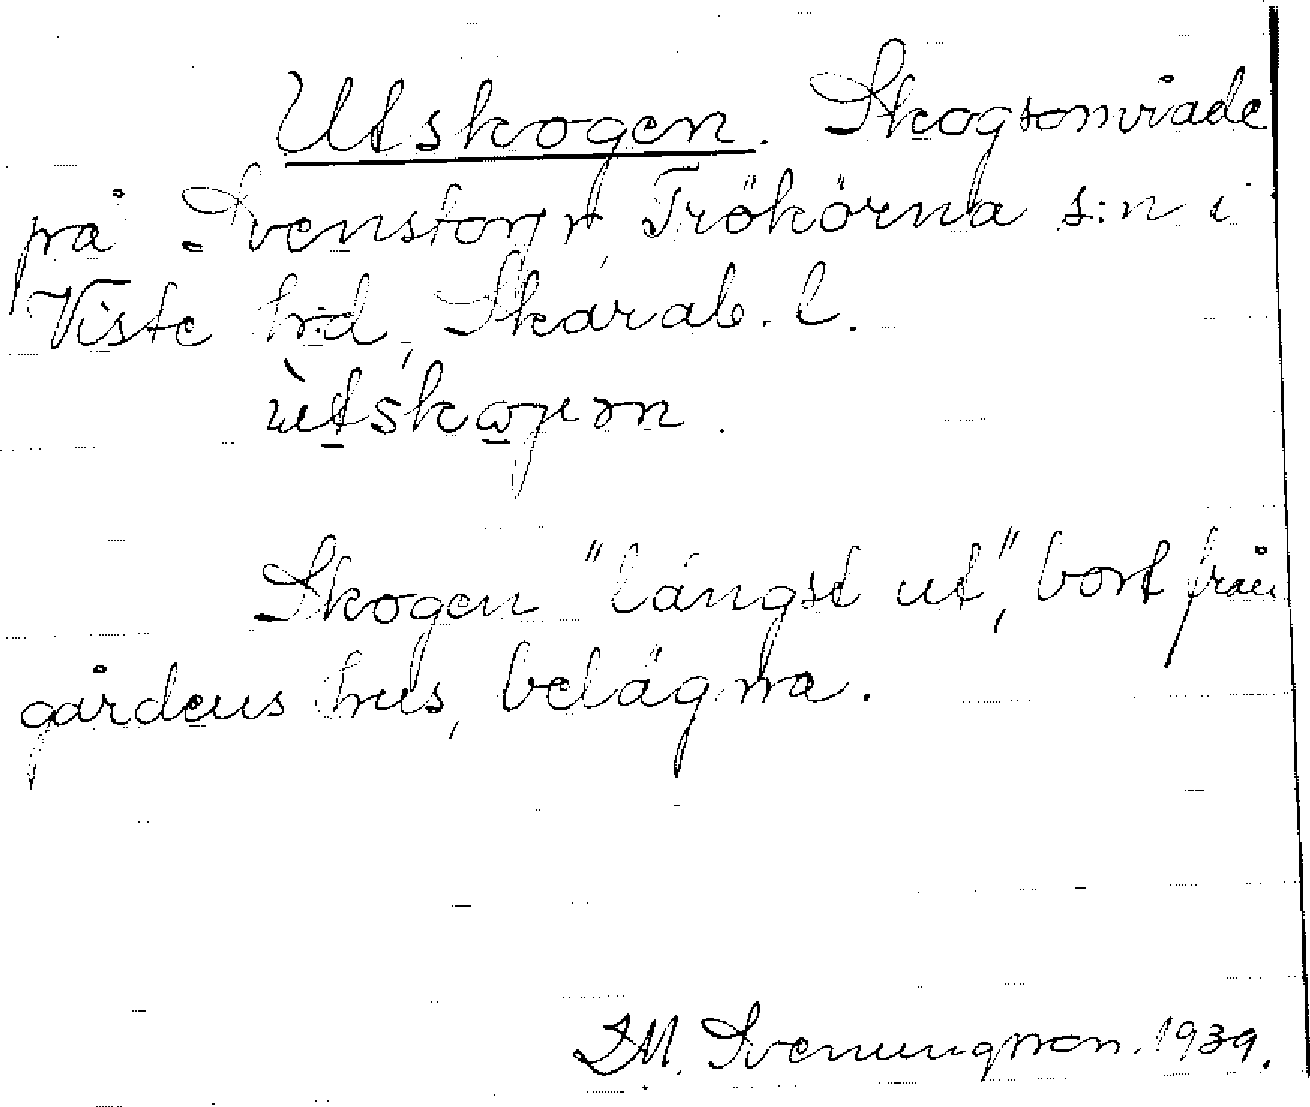 Utskogen. Skogsområde
på Svenstorp, Trökörna s:n i
Viste h:d, Skarab. l.
Skogen "längst ut", bort från
gårdens hus, belägna.
D.M. Svenungsson. 1939.